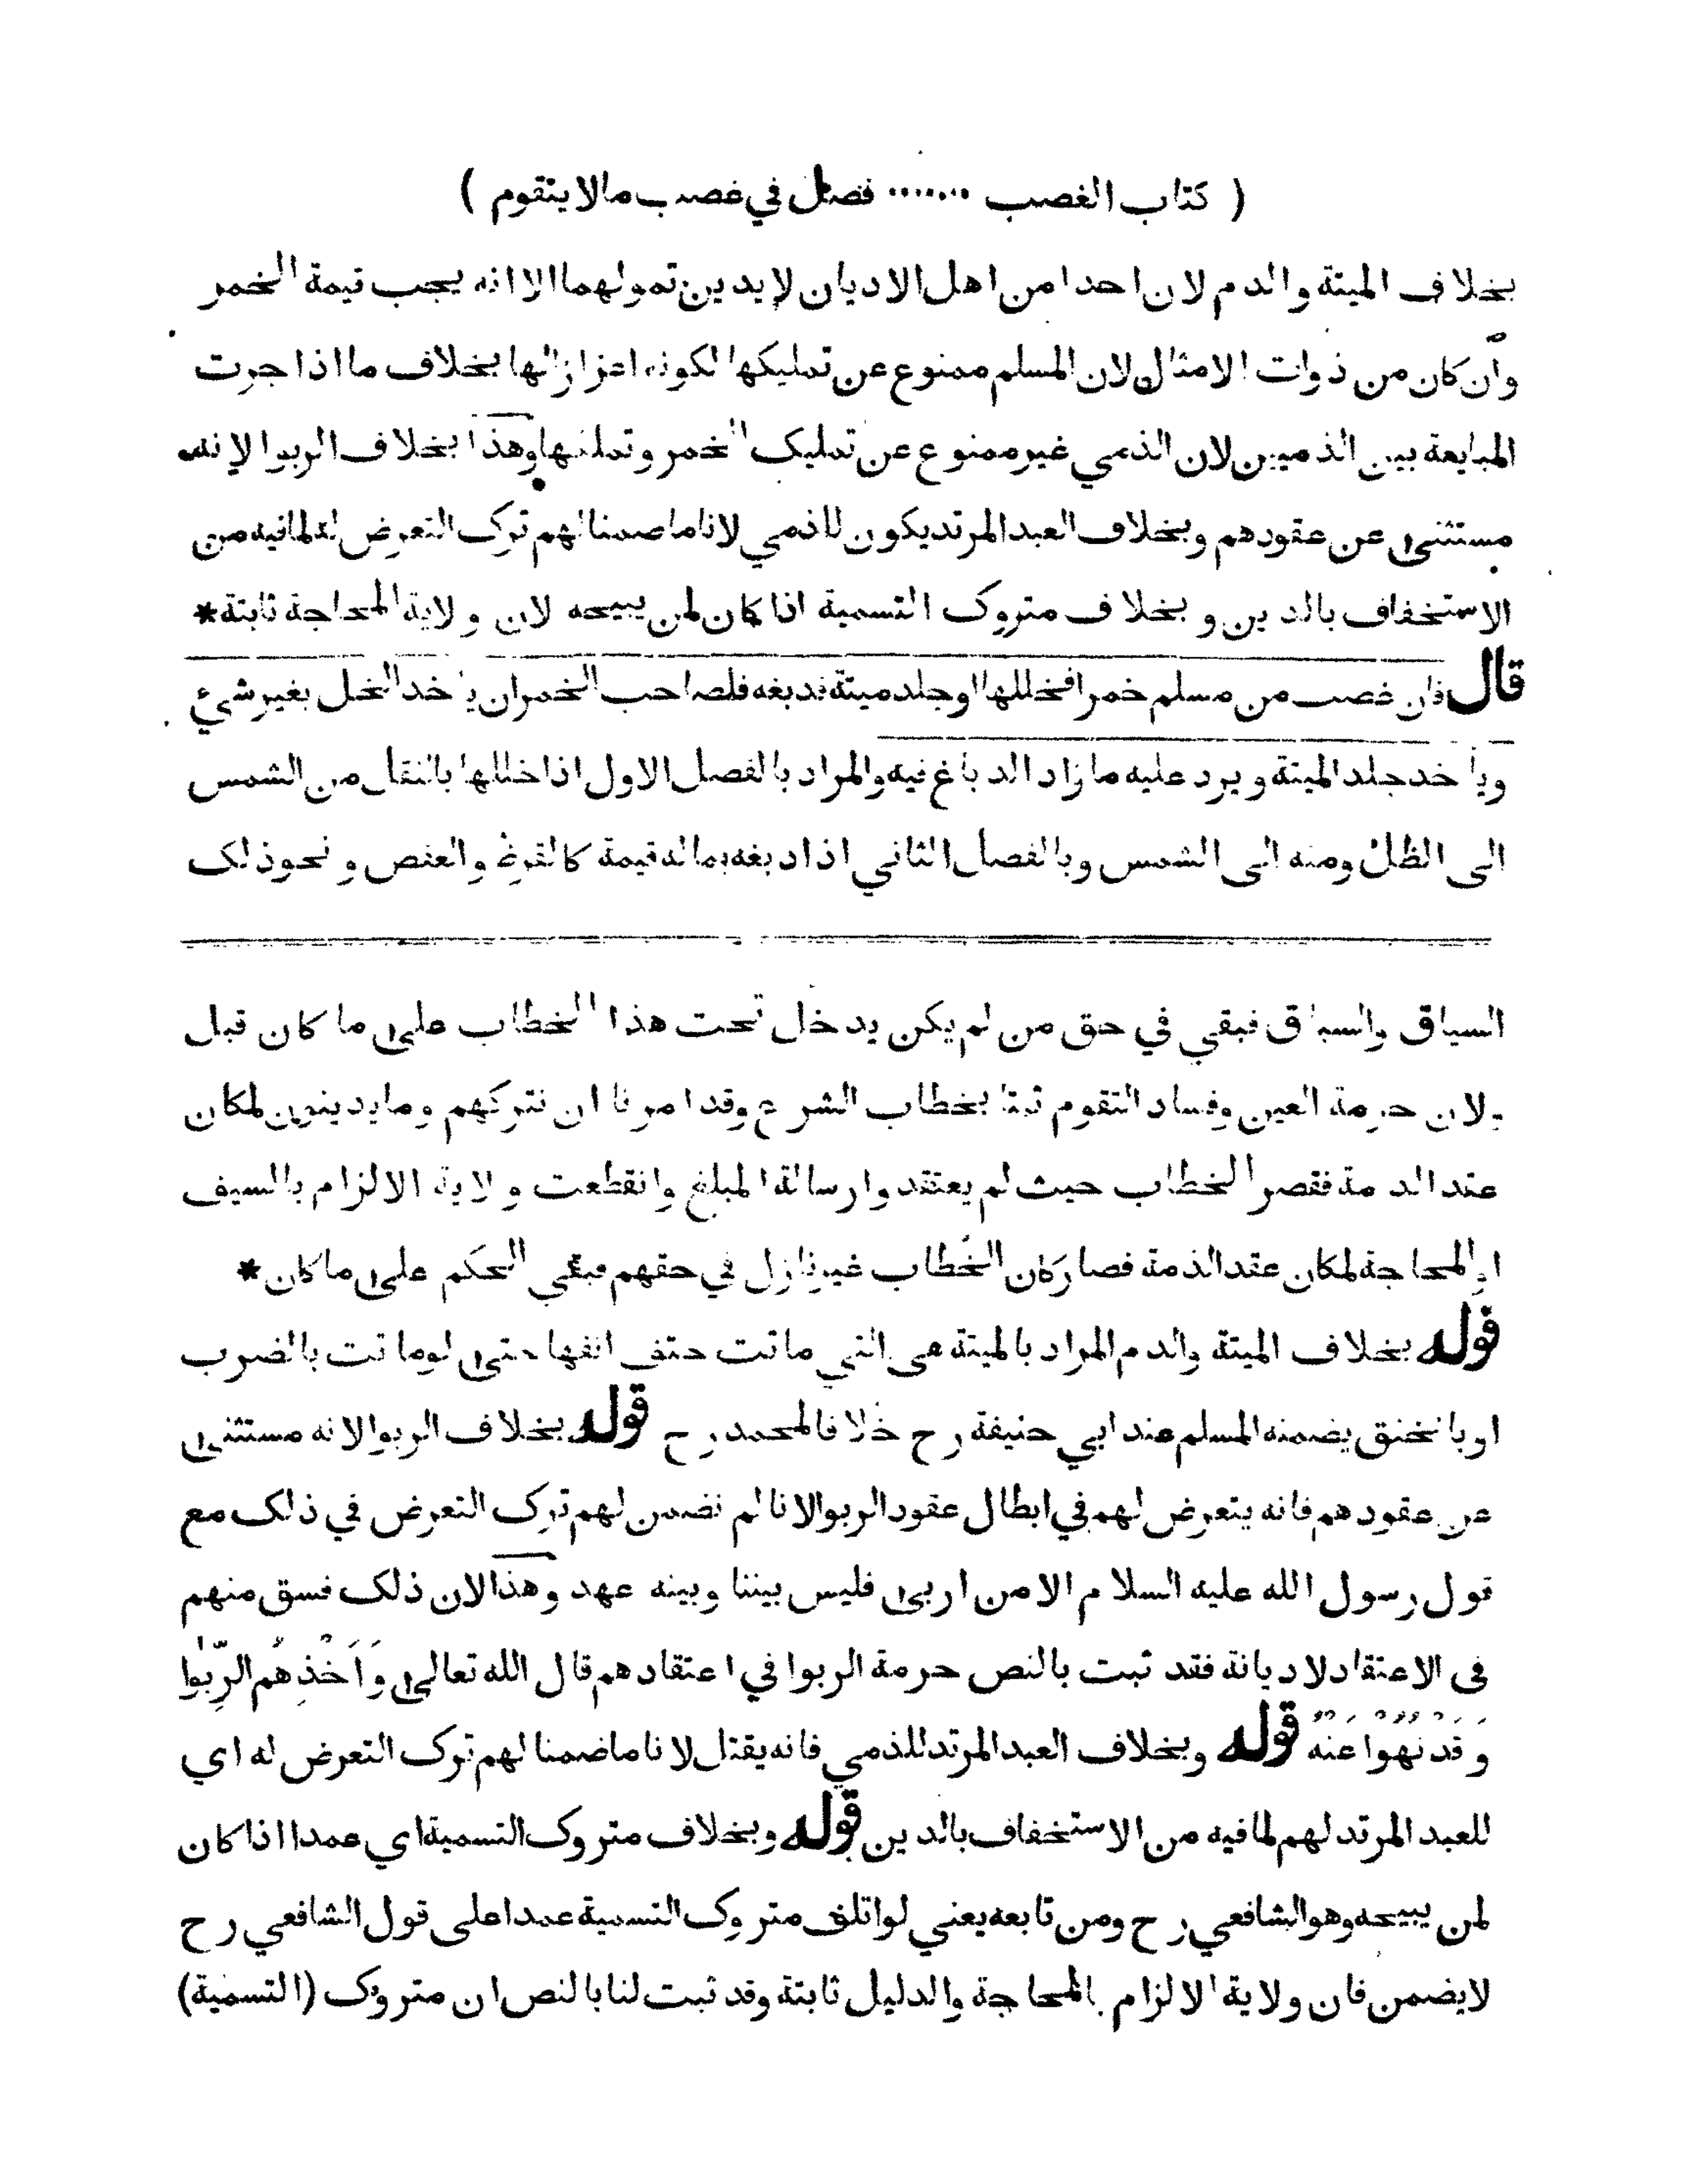 ( كتاب الغصب ....... فصل في غصب ما لا يتقوم )
بخلاف الميتة والدم لان احدا من اهل الاديان لا يدين تمولهما الا انه يجب قيمة الخمر
وان كان من ذوات الامثال لان المسلم ممنوع عن تمليكها لكونه اعزازا لها بخلاف ما اذا جرت
المبايعة بين الذميين لان الذمي غير ممنوع عن تمليك الخمر وتملكها وهذا بخلاف الربوا لانه
مستثنى عن عقودهم وبخلاف العبد المرتد يكون للذمي لانا ما ضمنا لهم ترك التعرض له لما فيه من
الاستخفاف بالدين وبخلاف متروك التسمية اذا كان لمن يبيحه لان ولاية المحاجة ثابتة *
قال فان غصب من مسلم خمرا فخللها او جلد ميتة فدبغه فلصاحب الخمر ان ياخذ الخل بغير شيء
وياخذ جلد الميتة ويرد عليه ما زاد الدباغ فيه والمراد بالفصل الاول اذا خللها بالنقل من الشمس
الى الظل ومنه الى الشمس وبالفصل الثاني اذا دبغه بما له قيمة كالقرظ والعفص ونحو ذلك
السياق والسباق فبقي في حق من لم يكن يدخل تحت هذا الخطاب على ما كان قبل
ولان حرمة العين وفساد التقوم ثبتا بخطاب الشرع وقد امرنا ان نتركهم وما يدينون لمكان
عقد الذمة فقصر الخطاب حيث لم يعتقدوا رسالة المبلغ وانقطعت ولاية الالزام بالسيف
او المحاجة لمكان عقد الذمة فصار كان الخطاب غير نازل في حقهم فبقي الحكم على ما كان *
قوله بخلاف الميتة والدم المراد بالميتة هي التي ماتت حتف انفها حتى لو ماتت بالضرب
او بالخنق يضمنه المسلم عند ابي حنيفة رح خلافا لمحمد رح قوله بخلاف الربوا لانه مستثنى
عن عقودهم فانه يتعرض لهم في ابطال عقود الربوا لانا لم نضمن لهم ترك التعرض في ذلك مع
قول رسول الله عليه السلام الا من اربى فليس بيننا وبينه عهد وهذا لان ذلك فسق منهم
في الاعتقاد لا ديانة فقد ثبت بالنص حرمة الربوا في اعتقادهم قال الله تعالى وَاَخْذِهِمُ الرِّبٰوا
وَقَدْ نُهُوْا عَنْهُ قوله وبخلاف العبد المرتد للذمي فانه يقتل لانا ما ضمنا لهم ترك التعرض له اي
للعبد المرتد لهم لما فيه من الاستخفاف بالدين قوله وبخلاف متروك التسمية اي عمدا اذا كان
لمن يبيحه وهو الشافعي رح ومن تابعه يعني لو اتلف متروك التسمية عمدا على قول الشافعي رح
لا يضمن فان ولاية الالزام بالمحاجة والدليل ثابتة وقد ثبت لنا بالنص ان متروك (التسمية)